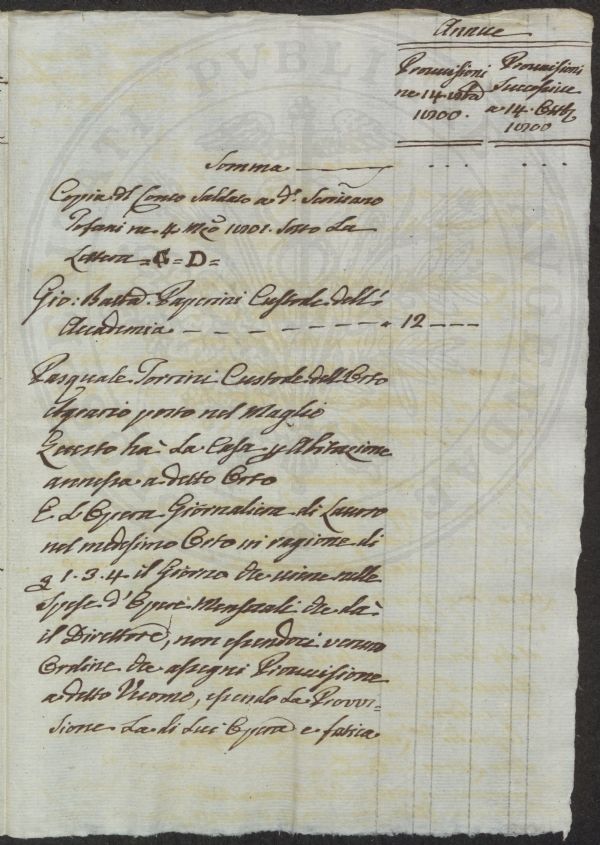 Annue
Provvisioni
ne 14 8bre
1800.
Provvisioni
Successive
a 14. Ottbe
1800
Somma
Copia del Conto Saldato a dº. Scrivano
Tofani ne 4 Mgº 1801. Sotto La
Lettera = C = D =
Gio: Batta. Paperini Custode dell'
Accademia - - - - - - - " 12 - - -
Pasquale Torrini Custode dell'Orto
Agrario posto nel Maglio
Questo ha La Casa p Abitazione
annessa a detto Orto
E L'Opera Giornaliera di Lavoro
nel medesimo Orto in ragione di
1. 3. 4 il Giorno che viene nelle
Spese d'Opere Mensuali che dà
il Direttore, non essendoci verun
Ordine che assegni Provvisione
a detto Uomo, essendo La Provvi-
sione La di Lui Opera e fatica